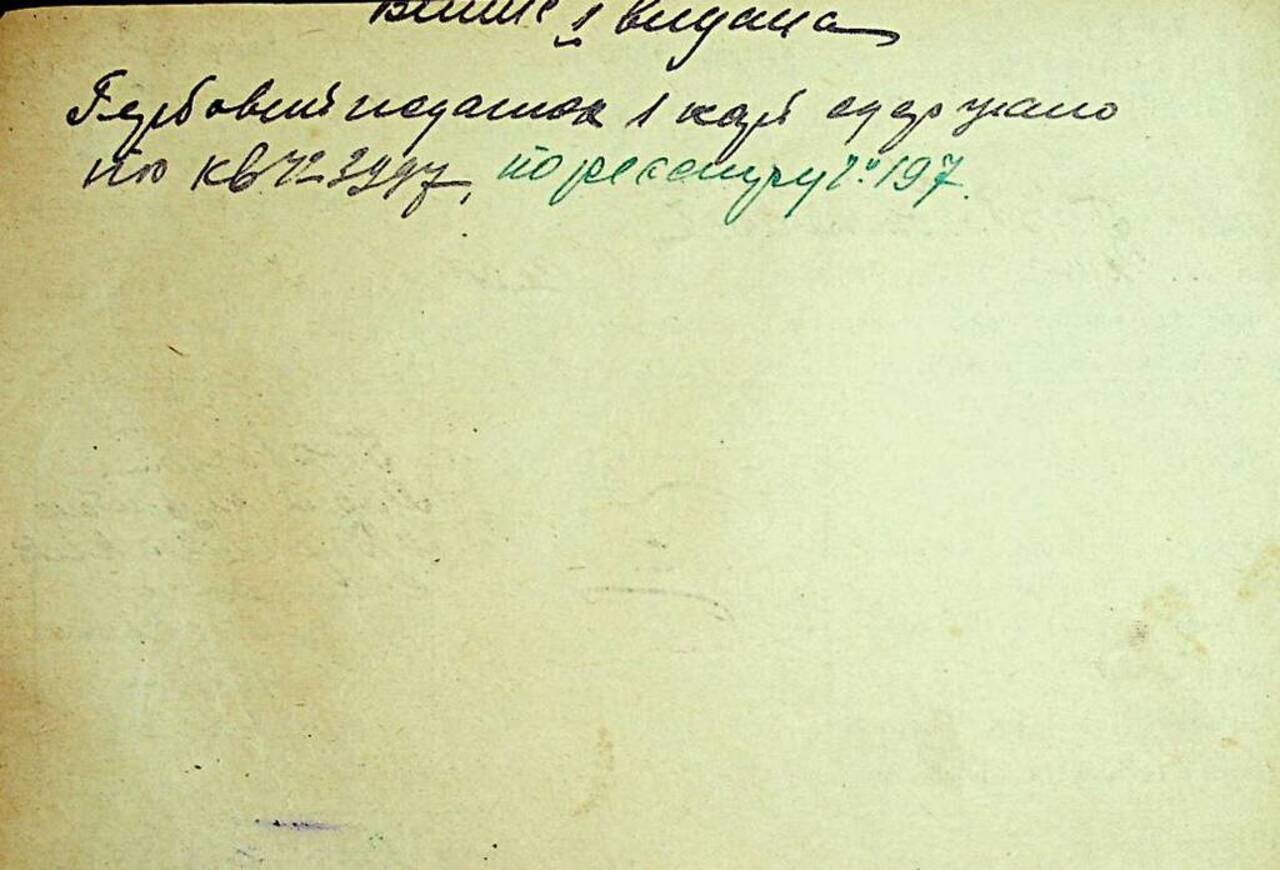 видана
Гербовий податок 1 карб одержано
по кв № 3997, по реєстру № 197.